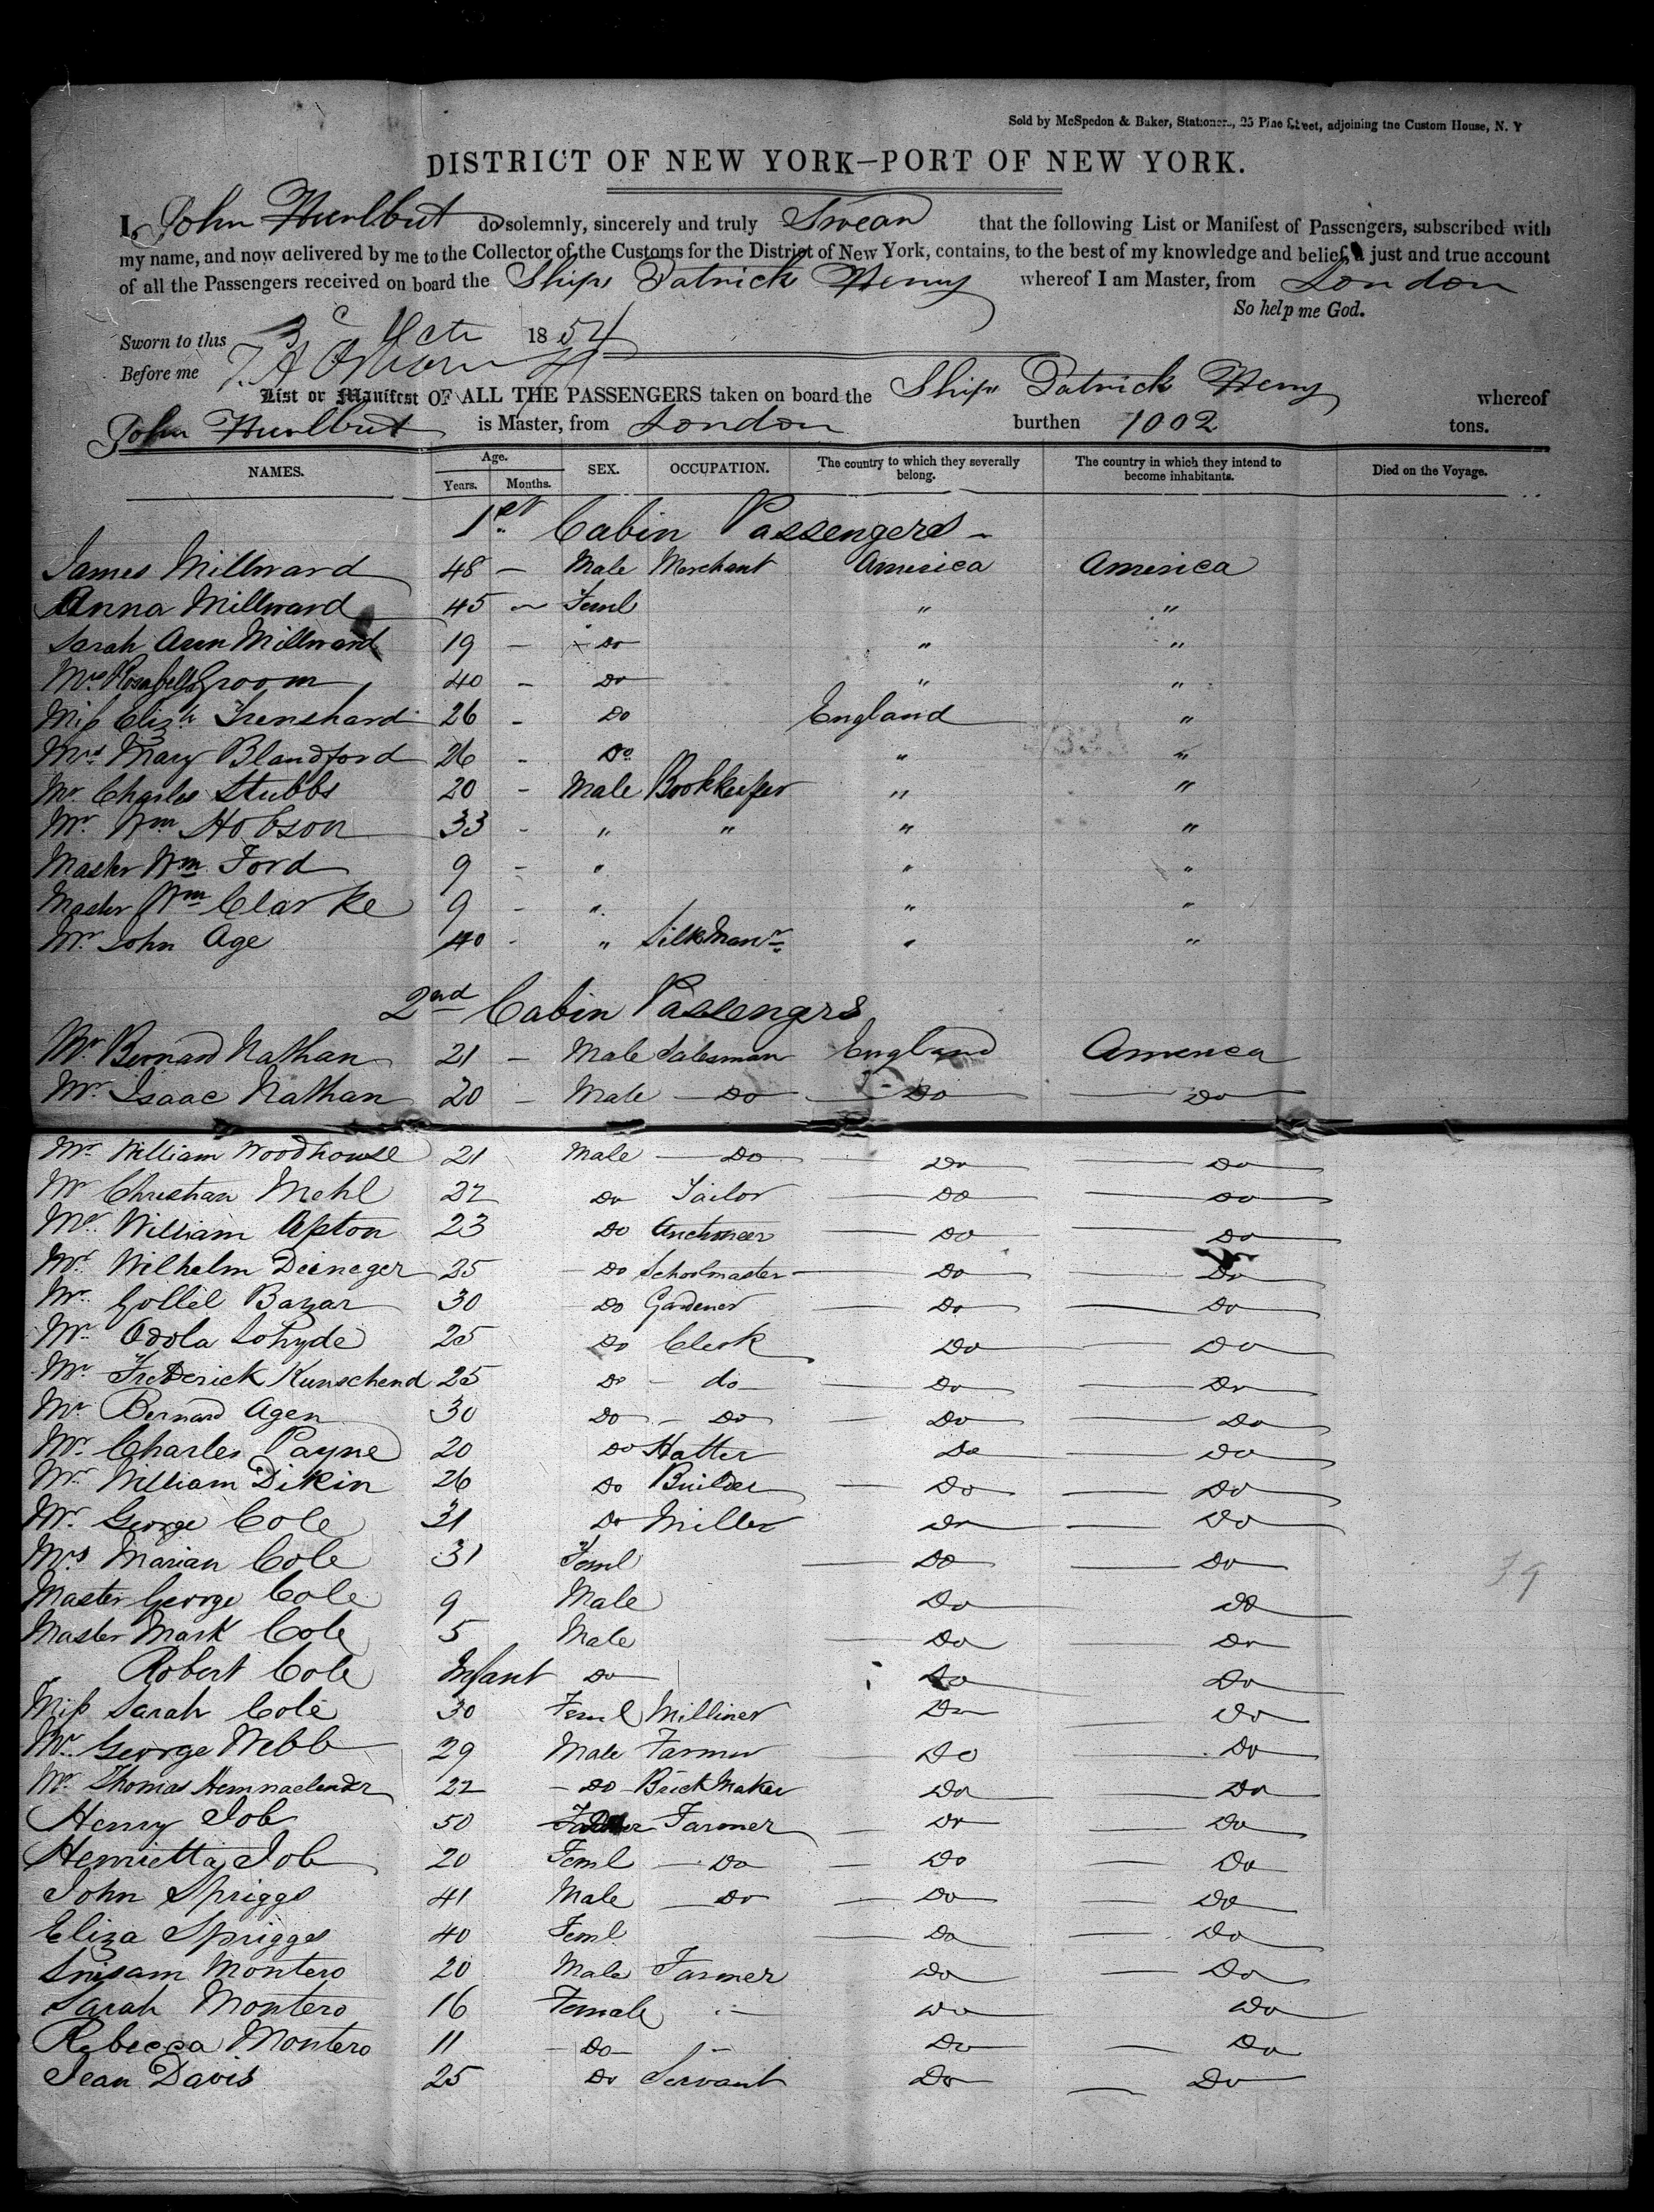 Sold by McSpedon & Baker, Stationers, 25 Pine Street, adjoining the Custom House, N. Y
DISTRICT OF NEW YORK—PORT OF NEW YORK.
I, John Hurlbut do solemnly, sincerely and truly Swear that the following List or Manifest of Passengers, subscribed with
my name, and now delivered by me to the Collector of the Customs for the District of New York, contains, to the best of my knowledge and belief, a just and true account
of all the Passengers received on board the Ship Patrick Henry whereof I am Master, from London
So help me God.
Sworn to this 3 Oct 1854
Before me
List or Manifest OF ALL THE PASSENGERS taken on board the Ship Patrick Henry whereof
John Hurlbut is Master, from London burthen 1002 tons.
NAMES. Age. Years. Months. SEX. OCCUPATION. The country to which they severally belong. The country in which they intend to become inhabitants. Died on the Voyage.
1st Cabin Passengers
James Millward 48 — Male Merchant America America
Anna Millward 45 — Feml " "
Sarah Ann Millward 19 — Do " "
Mrs Rosabella Groom 40 — Do " "
Miss Elizh Trenshard 26 - Do England "
Mrs Mary Blandford 26 - Do " "
Mr Charles Stubbs 20 - Male Bookkeeper " "
Mr. Wm Hobson 33 - " " " "
Master Wm Ford 9 — " " "
Master Wm Clarke 9 - " " "
Mr John Age 40 - " Silk Manr " "
2nd Cabin Passengrs
Mr Bernard Nathan 21 — Male Salesman England America
Mr Isaac Nathan 20 — Male Do Do Do
Mr William Woodhouse 21 Male Do Do Do
Mr Christian Mehl 22 Do Tailor Do Do
Mr William Apton 23 Do Auctioneer Do Do
Mr Wilhelm Deineger 25 Do Schoolmaster Do Do
Mr Gollel Bazar 30 Do Gardener Do Do
Mr Odola Lohyde 25 Do Clerk Do Do
Mr Frederick Kunschend 25 Do do Do Do
Mr Bernard Agen 30 Do Do Do Do
Mr Charles Payne 20 Do Hatter Do Do
Mr William Dikin 26 Do Builder Do Do
Mr George Cole 31 Do Miller Do Do
Mrs Marian Cole 31 Feml Do Do
Master George Cole 9 Male Do Do
39
Master Mark Cole 5 Male Do Do
Robert Cole Infant Do Do Do
Miss Sarah Cole 30 Feml Milliner Do Do
Mr George Webb 29 Male Farmer Do Do
Mr Thomas 22 Do Brick Maker Do Do
Henry Job 50 Farmer Do Do
Henrietta Job 20 Feml Do Do Do
John Spriggs 41 Male Do Do Do
Eliza Spriggs 40 Feml Do Do
Montero 20 Male Farmer Do Do
Sarah Montero 16 Female Do Do
Rebecca Montero 11 Do Do Do
Jean Davis 25 Do Servant Do Do